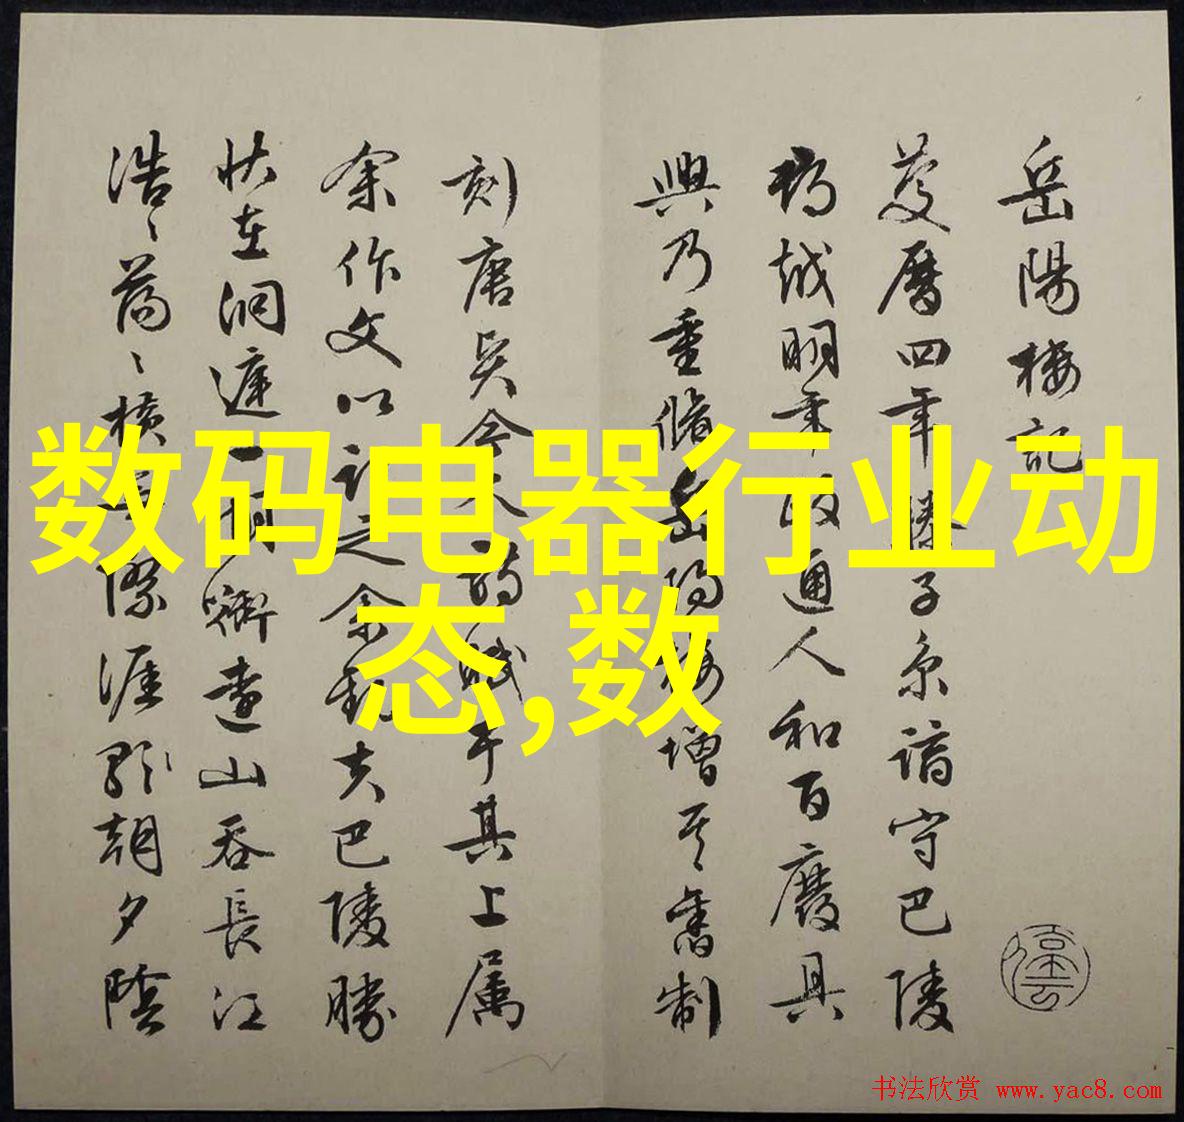 数码电器行业动
态,数
岳陽楼記
慶曆四年滕子京謫守巴陵
郡越明年政通人和百廢具
興乃重脩岳陽楼增其舊制
刻唐賢今人詩賦于其上屬
余作文以記之余觀夫巴陵勝
狀在洞庭一湖銜遠山吞長江
浩〻蕩〻橫無際涯朝夕陰
书法欣赏 www.yac8.com